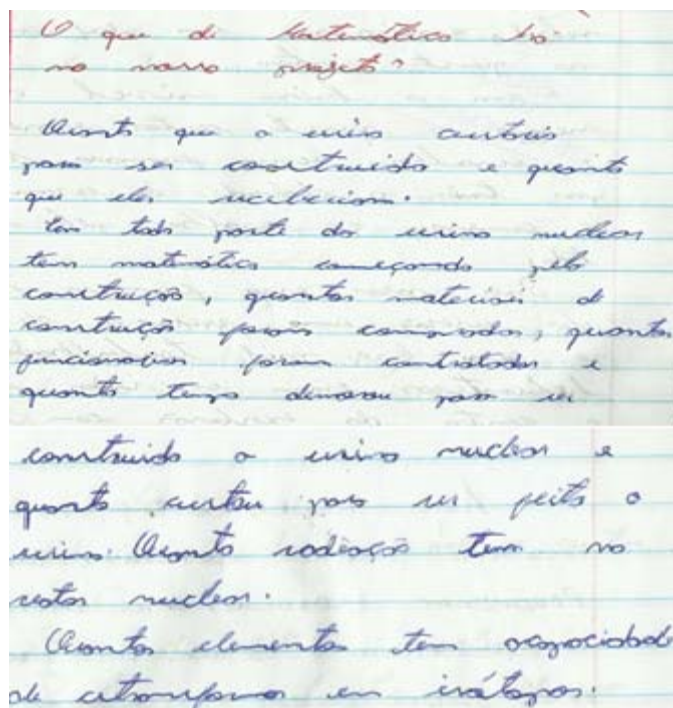 O que de Matemática há
no nosso projeto?
Quanto que a usina custou
para ser construida e quanto
que eles receberiam.
Em toda parte da usina nuclear
tem matemática começando pela
construção, quantos materiais de
construção foram comprados, quantos
funcionarios foram contratados e
quanto tempo demorou para ser
construida a usina nuclear e
quanto custou para ser feita a
usina. Quanta radiação tem no
reator nuclear.
Quantos elementos tem a capacidade
de se transformar em isótopos.